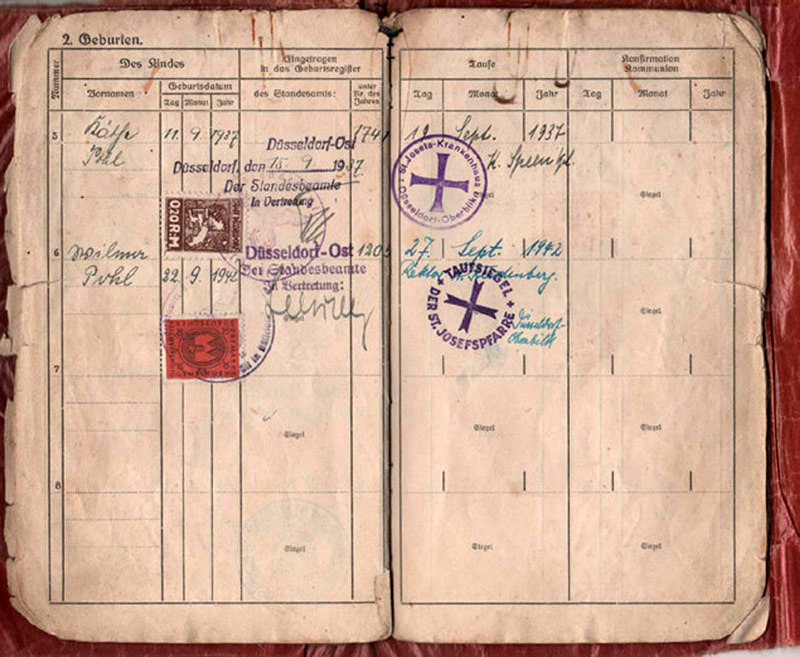 2. Geburten.
Nummer
Des Kindes
Eingetragen
in das Geburtsregister
Taufe
Konfirmation
Kommunion
Vornamen
Geburtsdatum
Tag Monat Jahr
des Standesamts:
unter
Nr. des
Jahres
Tag Monat Jahr
Tag Monat Jahr
5 Käthe 11. 9. 1937 174 19 Sept. 1937
Pohl
Düsseldorf-Ost
Düsseldorf, den 15. 9 1937
Der Standesbeamte
In Vertretung
St. Josefs-Krankenhaus
Düsseldorf-Oberbilk
Siegel
0,20 R.M
6 Wilmar 27. Sept. 1942
Pohl 22. 9. 1942
Düsseldorf-Ost 1205
Der Standesbeamte
In Vertretung:
Rektor
TAUFSIEGEL
DER ST. JOSEFSPFARRE
Düsseldorf-
Oberbilk
Siegel
Siegel
7
Siegel
Siegel
Siegel
8
Siegel
Siegel
Siegel